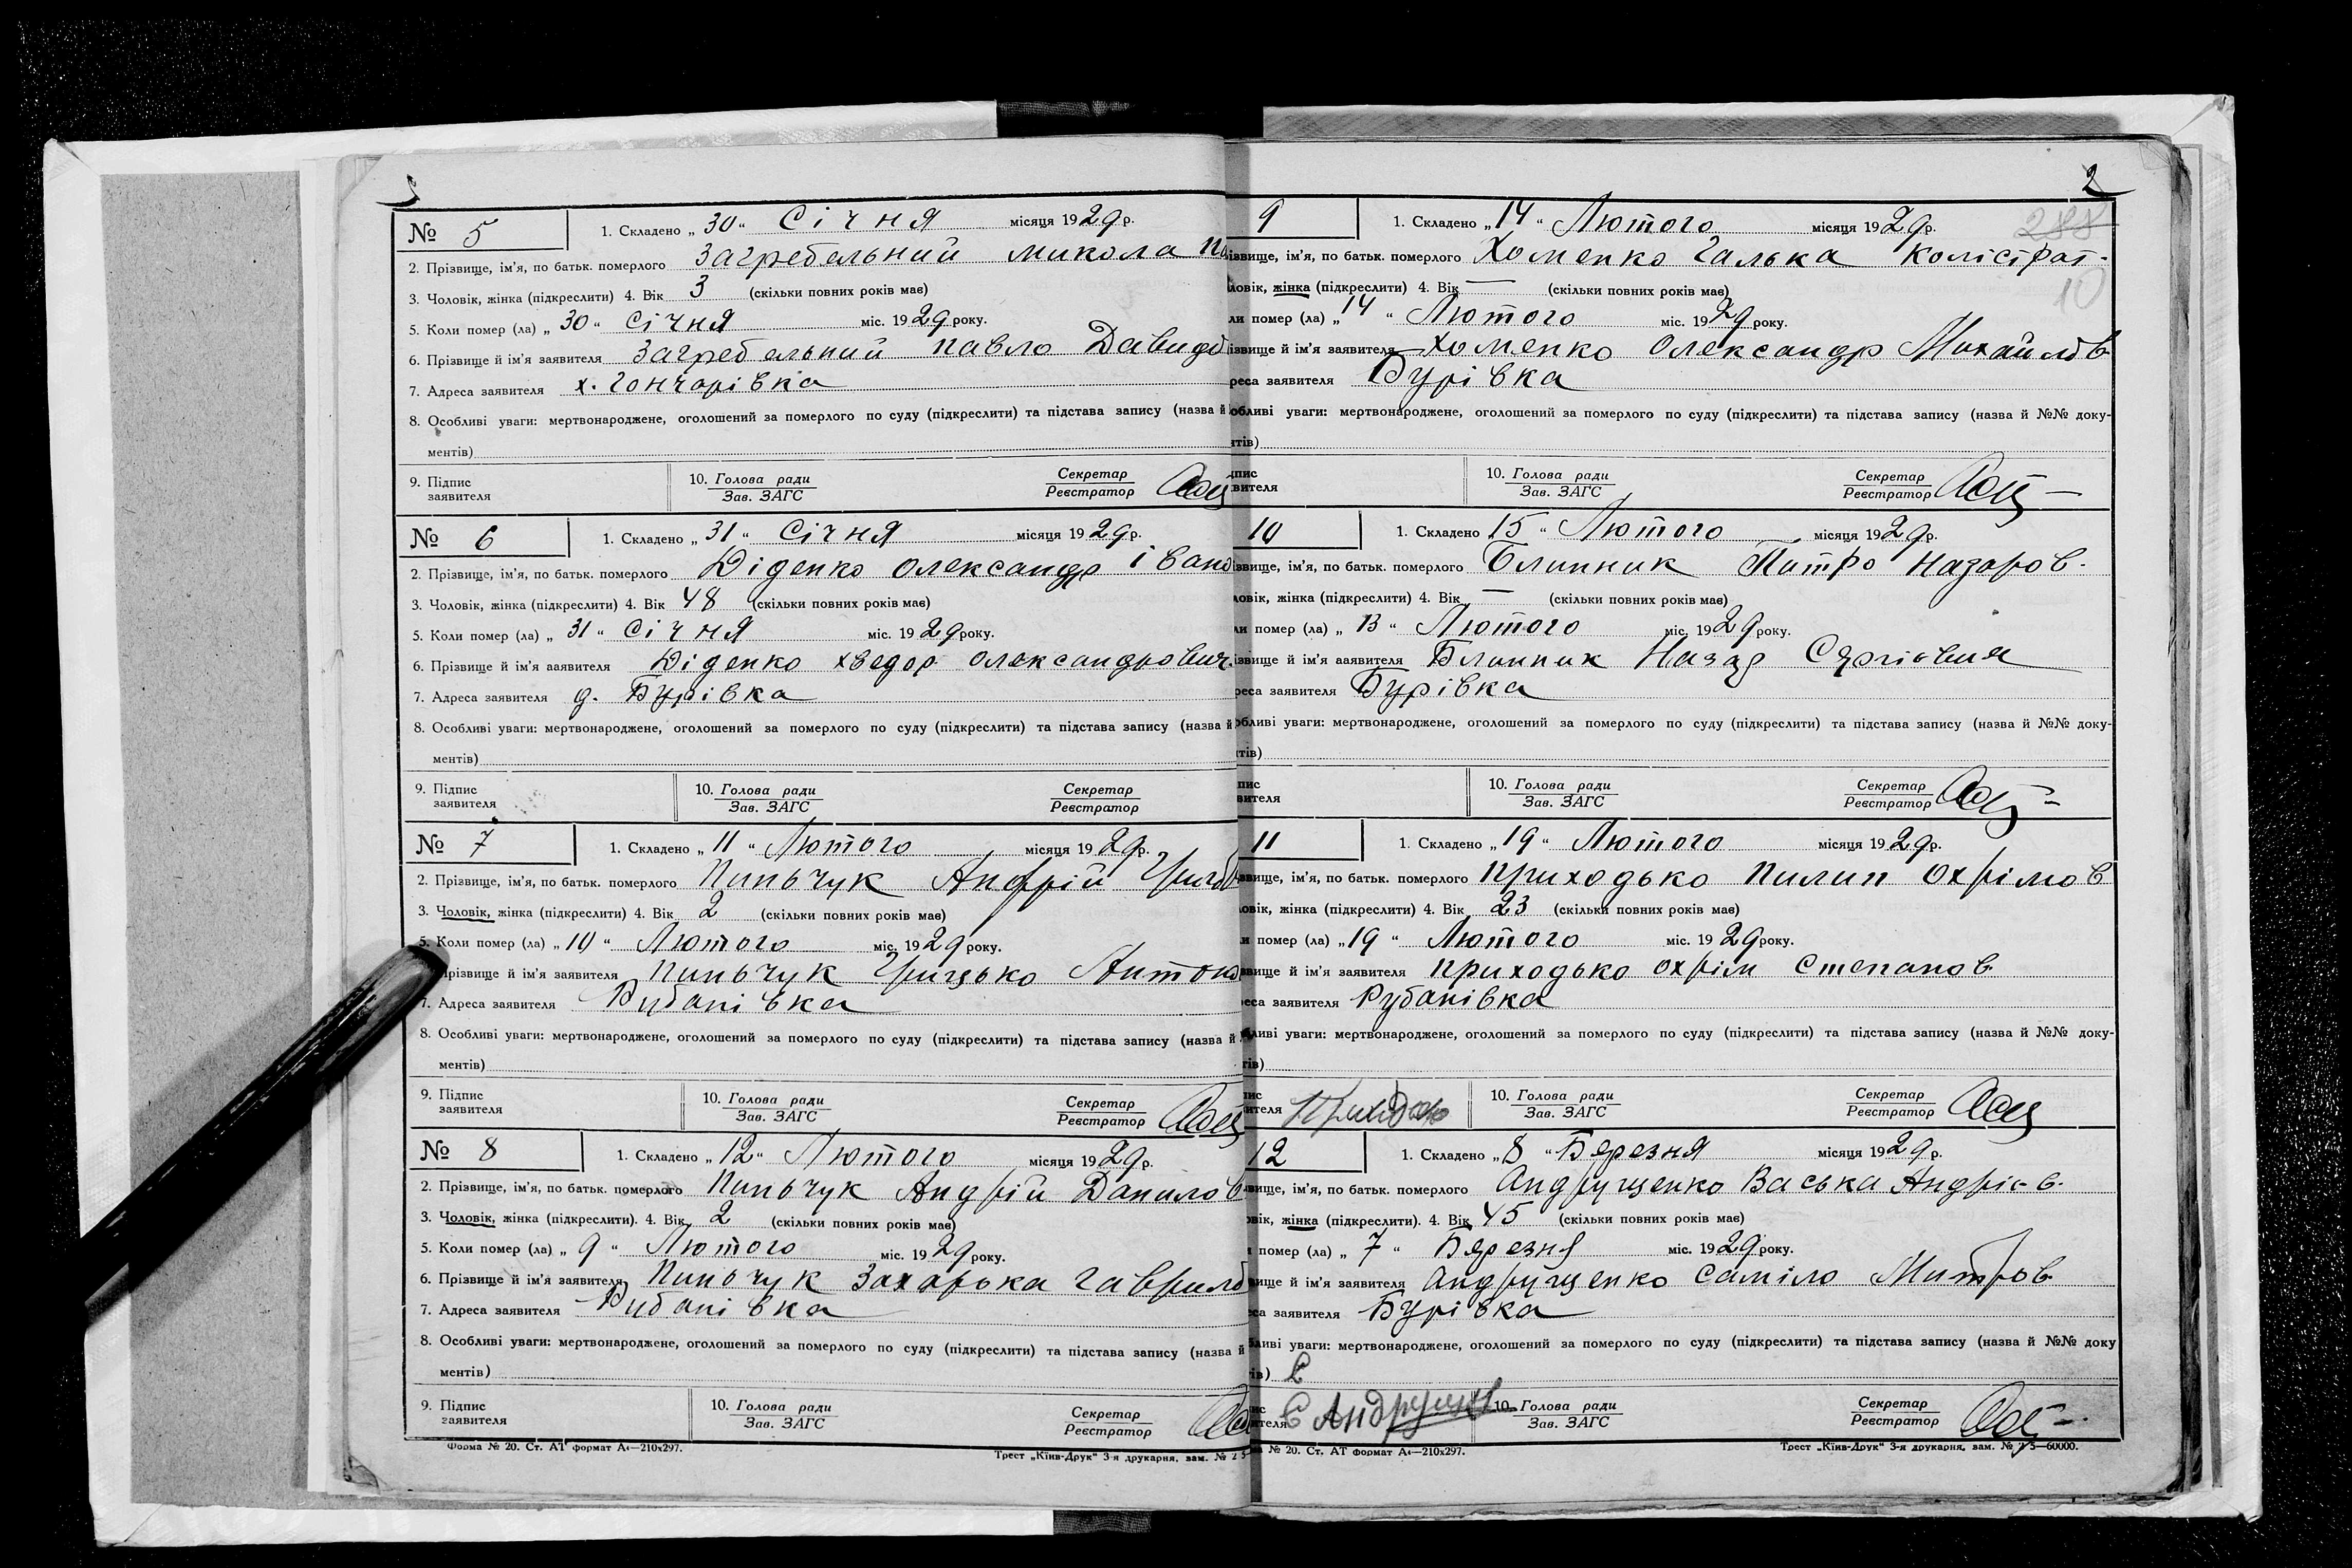 2
№ 5 1. Складено „ 30 “ Січня місяця 1929 р.
2. Прізвище, ім'я, по батьк. померлого Загребельний Микола
3. Чоловік, жінка (підкреслити) 4. Вік 3 (скільки повних років має)
5. Коли помер (ла) „ 30 “ Січня міс. 1929 року.
6. Прізвище й ім'я заявителя Загребельний Павло Давидо
7. Адреса заявителя х. Гончарівка
8. Особливі уваги: мертвонароджене, оголошений за померлого по суду (підкреслити) та підстава запису (назва й
ментів)
9. Підпис заявителя 10. Голова ради Зав. ЗАГС Секретар Реєстратор
№ 6 1. Складено „ 31 “ Січня місяця 1929 р.
2. Прізвище, ім'я, по батьк. померлого Діденко Олександр Івано
3. Чоловік, жінка (підкреслити) 4. Вік 48 (скільки повних років має)
5. Коли помер (ла) „ 31 “ Січня міс. 1929 року.
6. Прізвище й ім'я заявителя Діденко Хведор Олександрович
7. Адреса заявителя д. Бурівка
8. Особливі уваги: мертвонароджене, оголошений за померлого по суду (підкреслити) та підстава запису (назва й
ментів)
9. Підпис заявителя 10. Голова ради Зав. ЗАГС Секретар Реєстратор
№ 7 1. Складено „ 11 “ Лютого місяця 1929 р.
2. Прізвище, ім'я, по батьк. померлого Пиньчук Андрій
3. Чоловік, жінка (підкреслити) 4. Вік 2 (скільки повних років має)
5. Коли помер (ла) „ 10 “ Лютого міс. 1929 року.
прізвище й ім'я заявителя Пиньчук Грицько Антоно
7. Адреса заявителя Рубанівка
8. Особливі уваги: мертвонароджене, оголошений за померлого по суду (підкреслити) та підстава запису (назва й
ментів)
9. Підпис заявителя 10. Голова ради Зав. ЗАГС Секретар Реєстратор
№ 8 1. Складено „ 12 “ Лютого місяця 1929 р.
2. Прізвище, ім'я, по батьк. померлого Пиньчук Андрій Данилов
3. Чоловік, жінка (підкреслити). 4. Вік 2 (скільки повних років має)
5. Коли помер (ла) „ 9 “ Лютого міс. 1929 року.
6. Прізвище й ім'я заявителя Пиньчук Захарька Гаврило
7. Адреса заявителя Рубанівка
8. Особливі уваги: мертвонароджене, оголошений за померлого по суду (підкреслити) та підстава запису (назва й
ментів)
9. Підпис заявителя 10. Голова ради Зав. ЗАГС Секретар Реєстратор
Форма № 20. Ст. АТ формат А4—210х297.
Трест „Київ-Друк“ 3-я друкарня, зам. №
9 1. Складено „ 14 “ Лютого місяця 1929 р.
288
ізвище, ім'я, по батьк. померлого Хоменко Галька Колістрат.
10
ловік, жінка (підкреслити) 4. Вік — (скільки повних років має)
ли помер (ла) „ 14 “ Лютого міс. 1929 року.
ізвище й ім'я заявителя Хоменко Олександр Михайлов
реса заявителя Бурівка
обливі уваги: мертвонароджене, оголошений за померлого по суду (підкреслити) та підстава запису (назва й №№ доку-
нтів)
дпис вителя 10. Голова ради Зав. ЗАГС Секретар Реєстратор
10 1. Складено 15 “ Лютого місяця 1929 р.
ізвище, ім'я, по батьк. померлого Блинник Питро Назаров.
ловік, жінка (підкреслити) 4. Вік — (скільки повних років має)
ли помер (ла) „ 13 “ Лютого міс. 1929 року.
ізвище й ім'я заявителя Блинник Назар
реса заявителя Бурівка
обливі уваги: мертвонароджене, оголошений за померлого по суду (підкреслити) та підстава запису (назва й №№ доку-
нтів)
пис вителя 10. Голова ради Зав. ЗАГС Секретар Реєстратор
11 1. Складено „ 19 “ Лютого місяця 1929 р.
звище, ім'я, по батьк. померлого Приходько Пилип Охрімов
ловік, жінка (підкреслити) 4. Вік 23 (скільки повних років має)
и помер (ла) „ 19 “ Лютого міс. 1929 року.
звище й ім'я заявителя Приходько Охрім Степанов.
еса заявителя Рубанівка
бливі уваги: мертвонароджене, оголошений за померлого по суду (підкреслити) та підстава запису (назва й №№ доку-
тів)
пис вителя Приходько 10. Голова ради Зав. ЗАГС Секретар Реєстратор
12 1. Складено „ 8 “ Березня місяця 1929 р.
вище, ім'я, по батьк. померлого Андрущенко Васька Андрієв.
вік, жінка (підкреслити). 4. Вік 45 (скільки повних років має)
и помер (ла) „ 7 “ Березня міс. 1929 року.
вище й ім'я заявителя Андрущенко Саміло Митров.
са заявителя Бурівка
бливі уваги: мертвонароджене, оголошений за померлого по суду (підкреслити) та підстава запису (назва й №№ доку
ів) С
ис ителя С Андрущен 10. Голова ради Зав. ЗАГС Секретар Реєстратор
ма № 20. Ст. АТ формат А4—210х297.
Трест „Київ-Друк“ 3-я друкарня, зам. № —60000.